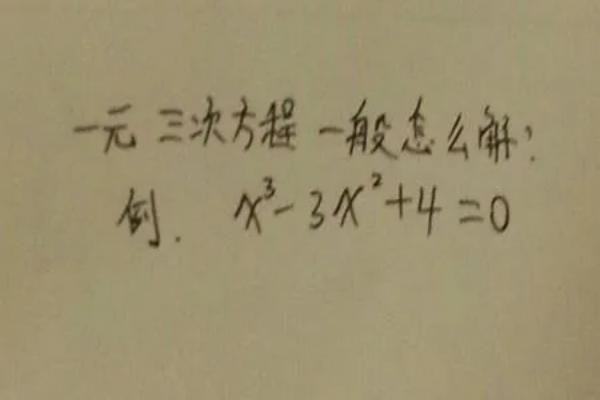 一元三次方程一般怎么解?
例. x³-3x²+4=0